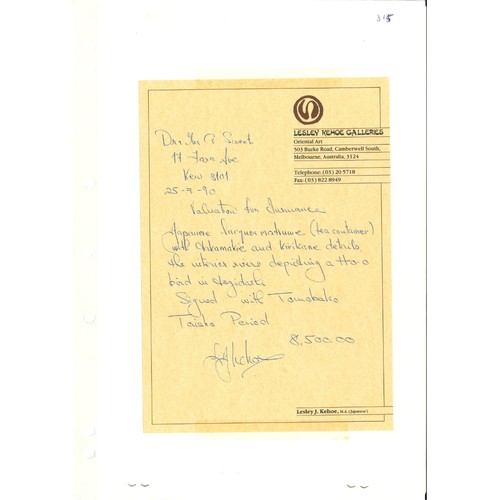 315
LESLEY KEHOE GALLERIES
Oriental Art
503 Burke Road, Camberwell South,
Melbourne, Australia, 3124
Telephone: (03) 20 5718
Fax: (03) 822 8949
Kew 3101
25-7-90
Valuation for Insurance
Japanese lacquer (tea container)
with and Kirikane details
the interior depicting a Ho-o
bird in
Signed with Tomobako
Taisho Period
8,500.00
Lesley J. Kehoe, M.A. (Japanese)